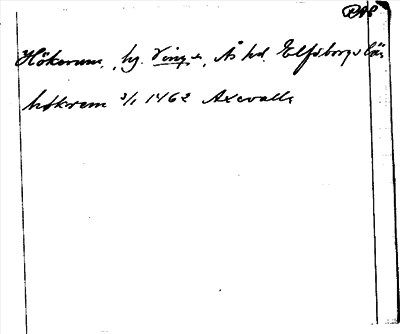 Hökerum, hg. Ving s., Ås hd. Elfsborgs län
høkrem 3/1 1462 Axevalla